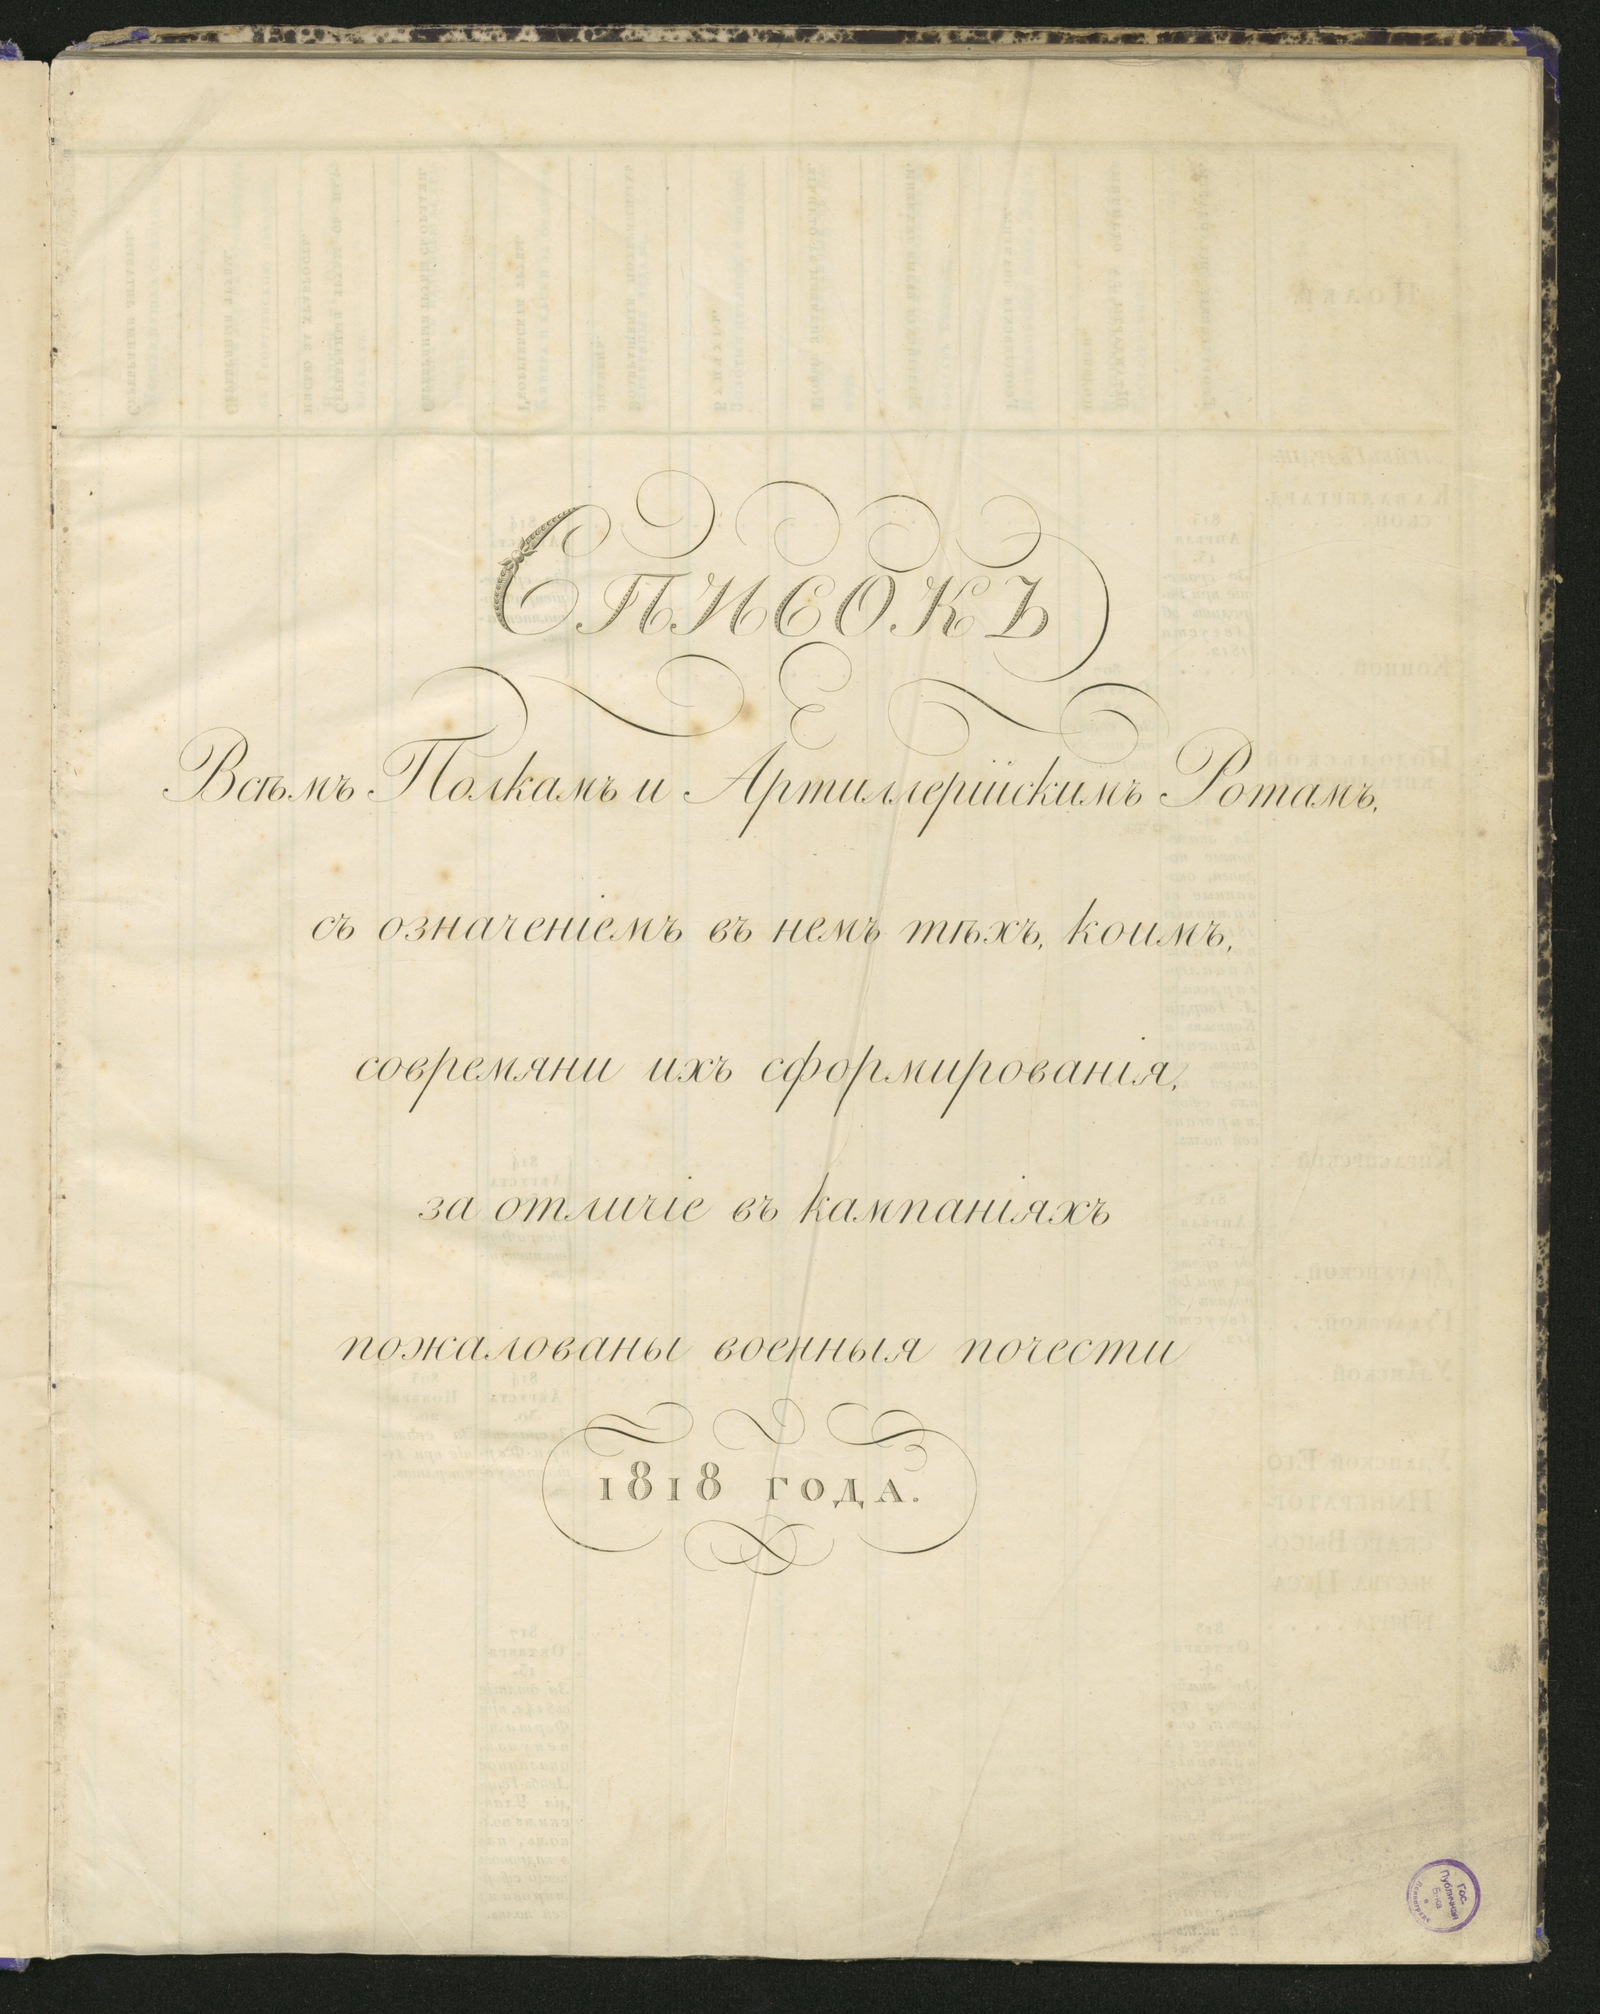 СПИСОКЪ
Всѣмъ Полкамъ и Артиллерійскимъ Ротамъ,
съ означеніемъ въ немъ тѣхъ, коимъ,
современи ихъ сформированія,
за отличіе въ кампаніяхъ
пожалованы военныя почести
1818 ГОДА.
Гос.
Публичная
б-ка
в
Ленинграде